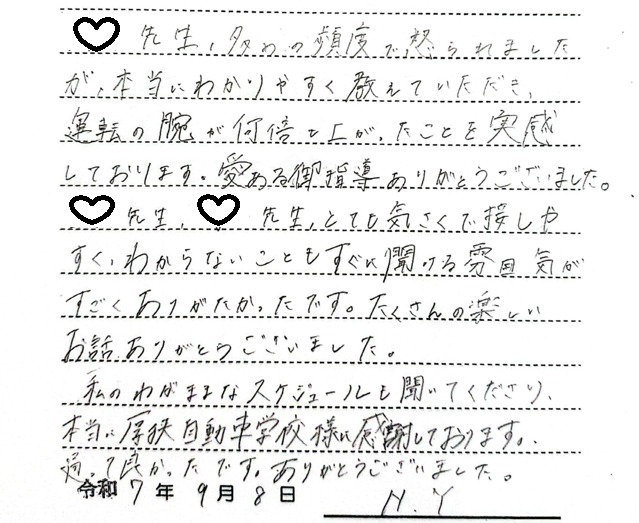 先生、多めの頻度で怒られました
が、本当にわかりやすく教えていただき、
運転の腕が何倍も上がったことを実感
しております。愛ある御指導ありがとうございました。
先生、先生、とても気さくで接しや
すく、わからないこともすぐに聞ける雰囲気が
すごくありがたかったです。たくさんの楽しい
お話ありがとうございました。
私のわがままなスケジュールも聞いてくださり、
本当に厚狭自動車学校様に感謝しております。
通って良かったです。ありがとうございました。
令和 7 年 9 月 8 日 N.Y